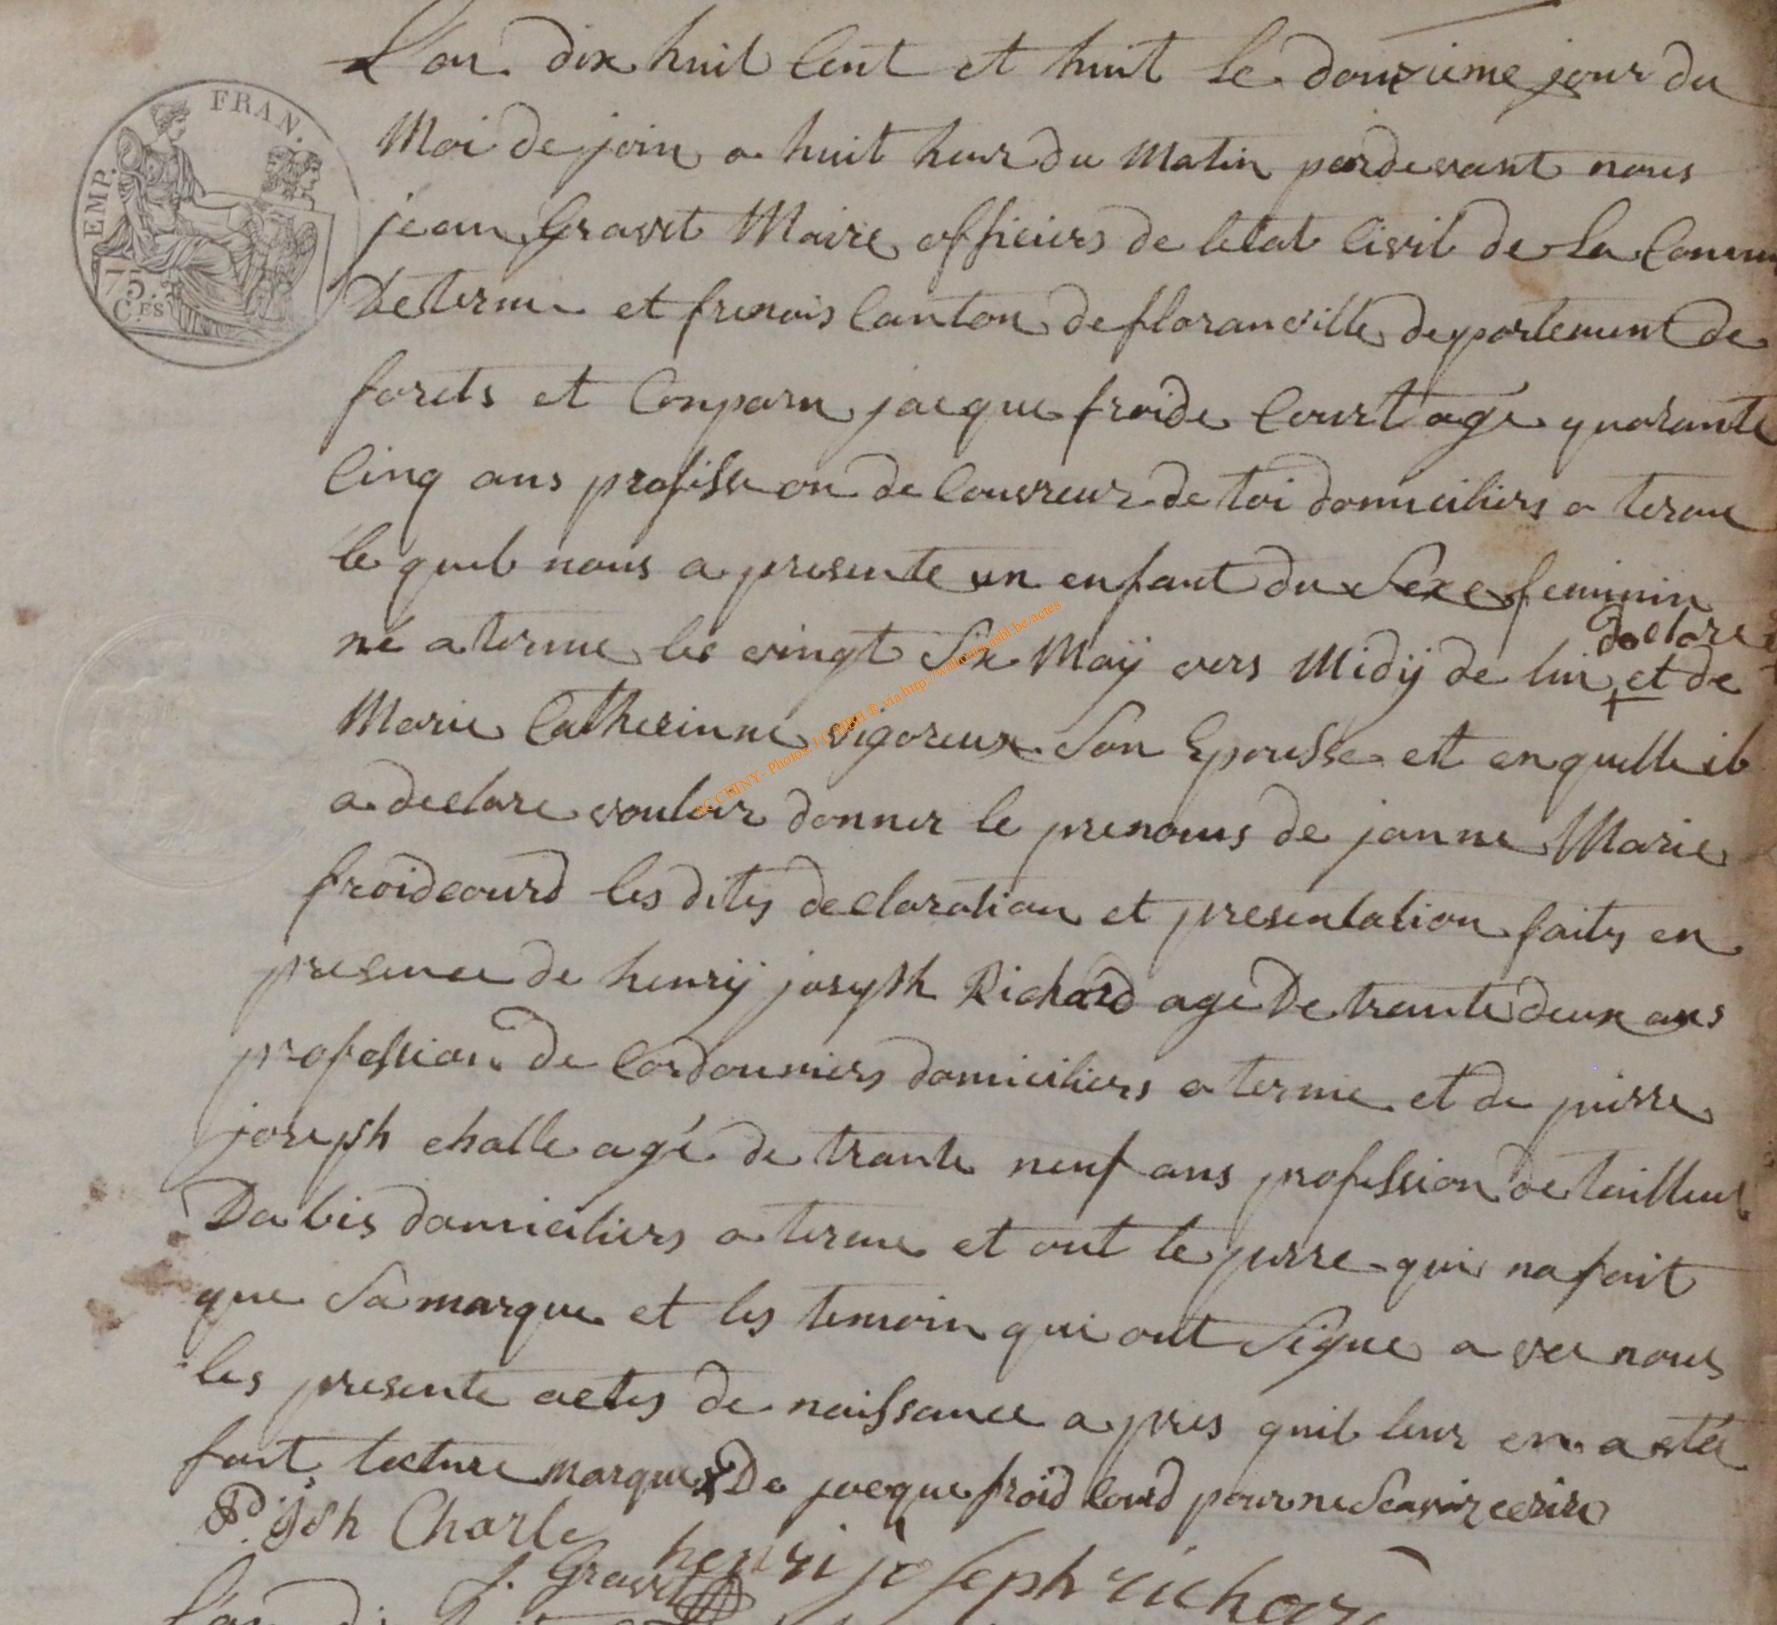 L'an dix huit Cent et huit le douzieme jour du
FRAN.
EMP.
75.
C.ES
Moi de join a huit heur du Matin pardevant nous
jean Gravet Maire officiers de letat Civil de La Comm
De terme et frenois Canton de floranville departement de
forets et Conparu jacque froide Court age quarante
Cinq ans profission de Couvreur de toi domiciliers a terme
le quel nous a presente un enfant du Sexe feminin
né a terme le vingt Six Maÿ vers Midÿ de lui et de
declare
Marie Catherinne vigoreux Son Epousse et en quelle il
a declare vouloir donner le prenoms de janne Marie
froidcourd les dites declaration et presentation faites en
presence de henrÿ joseph Richard age De trente deux ans
profession de Cordonniers domiciliers a terme et de pierre
joseph challe agé de trante neuf ans profession de tailleur
Dabis domiciliers a terme et ont le perre qui na fait
que Sa marque et les temoin qui ont Signe a vec nous
les presente actes de naissance a pres quil leur en a eté
fait lecture marque De jacque froid Courd pour ne Scavoir ecrire
P. jsh Charle
henri joseph richard
J. Gravet
CCHINY - Photos J.C. via http://
asbl.be/actes